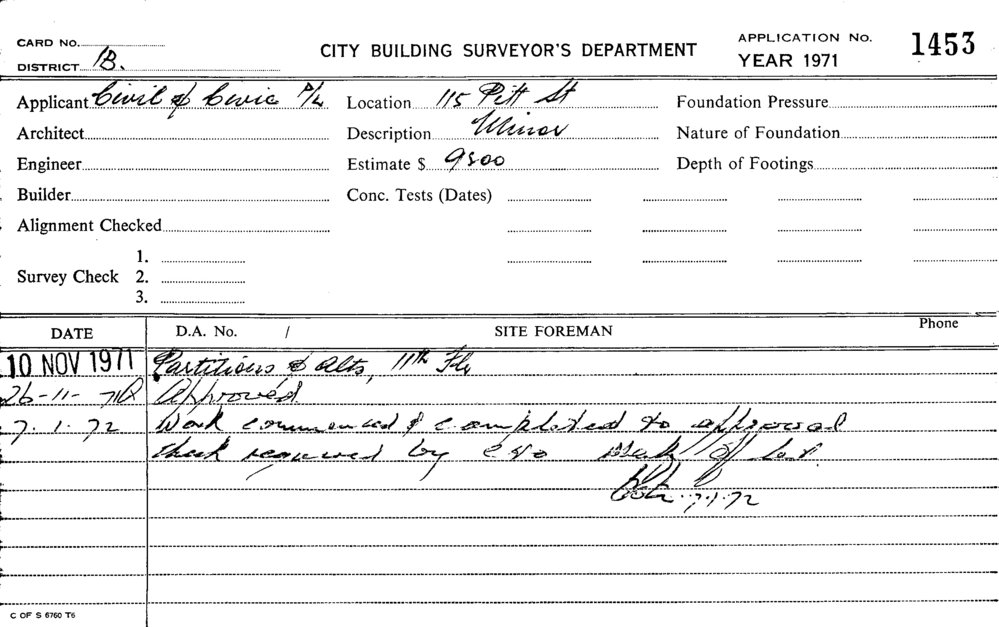 CARD No.
DISTRICT B.
CITY BUILDING SURVEYOR'S DEPARTMENT
APPLICATION No. 1453
YEAR 1971
Applicant Civil & Civic P/L Location 115 Pitt St Foundation Pressure
Architect Description Minor Nature of Foundation
Engineer Estimate $ 9500 Depth of Footings
Builder Conc. Tests (Dates)
Alignment Checked
1.
Survey Check 2.
3.
DATE D.A. No. / SITE FOREMAN Phone
10 NOV 1971 Partitions & Alts, 11th Flr
26-11-71 Approved
7.1.72 Work commenced & completed to approval
required by
7.1.72
C OF S 6760 T6